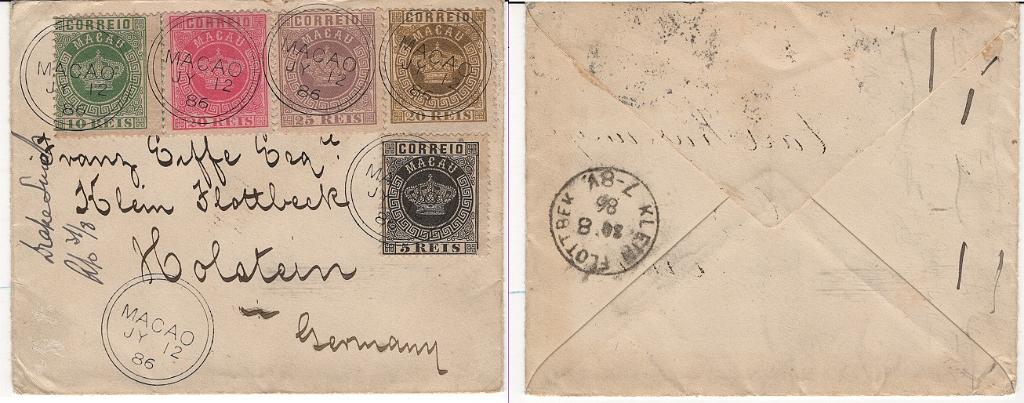 CORREIO MACAU 10 REIS
CORREIO MACAU 20 REIS
CORREIO MACAU 25 REIS
CORREIO MACAU 20 REIS
MACAO JY 12 86
MACAO JY 12 86
MACAO JY 12 86
MACAO JY 12 86
CORREIO MACAU 5 REIS
Franz Eiffe Esqr.
Klein Flottbeck
Holstein
Germany
MACAO
JY 12
86
KLEIN FLOTTBEK
7-8V
86